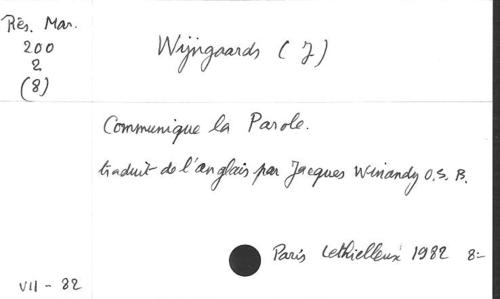 Rés. Mar.
200
2
(8)
Wijngaards (J)
Communique la Parole.
traduit de l'anglais par Jacques Winandy O.S.B.
Paris Lethielleux 1982 8=
VII - 82